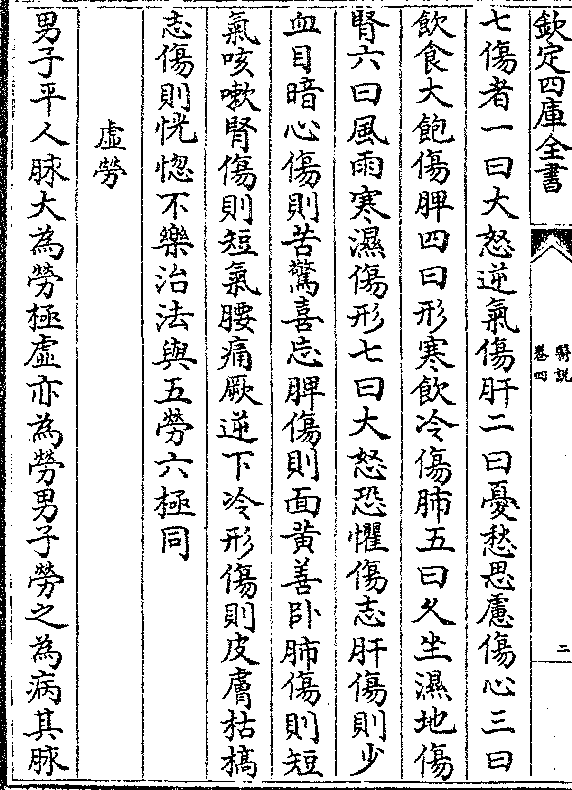 欽定四庫全書
醫說
卷四
二
七傷者一曰大怒逆氣傷肝二曰憂愁思慮傷心三曰
飲食大飽傷脾四曰形寒飲冷傷肺五曰久坐濕地傷
腎六曰風雨寒濕傷形七曰大怒恐懼傷志肝傷則少
血目暗心傷則苦驚喜忘脾傷則面黄善卧肺傷則短
氣咳嗽腎傷則短氣腰痛厥逆下冷形傷則皮膚枯槁
志傷則恍惚不樂治法與五勞六極同
虚勞
男子平人脉大為勞極虚亦為勞男子勞之為病其脉